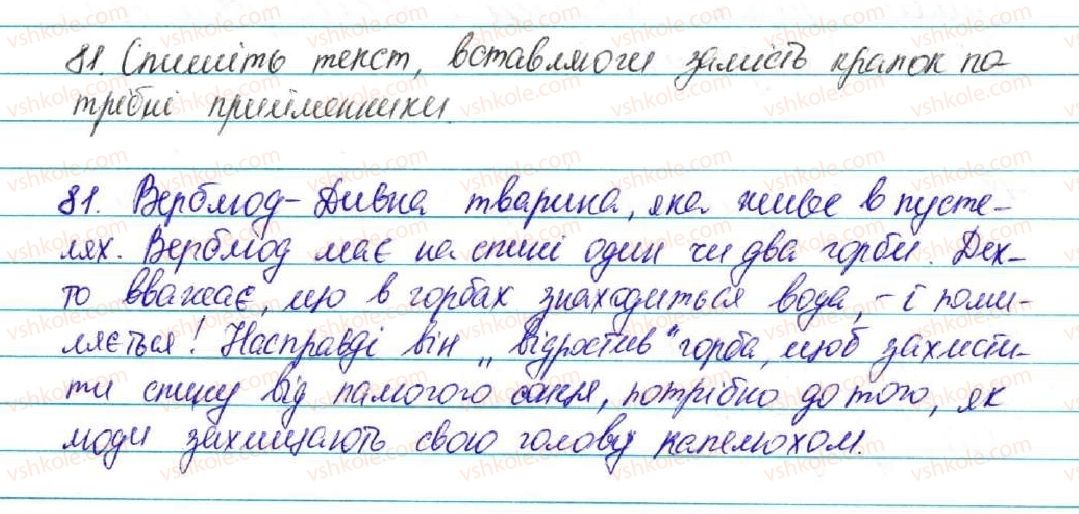 81. Спишіть текст, вставляючи замість крапок по-
трібні прийменники.
81. Верблюд - дивна тварина, яка живе в пусте-
лях. Верблюд має на спині один чи два горби. Дех-
то вважає, що в горбах знаходиться вода, - і поми-
ляється! Насправді він „відростив" горба, щоб захисти-
ти спину від палючого сонця, потрібно до того, як
люди захищають свою голову капелюхом.